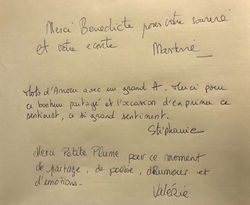 Merci Benedicte pour votre sourire
et votre écoute
Martine
Mots d'Amour avec un grand A. Merci pour
ce bonheur partagé et l'occasion d'exprimer ce
sentiment, ce si grand sentiment.
Stéphanie
Merci Petite Plume pour ce moment
de partage, de poésie, d'humour et
d'émotions.
Valérie